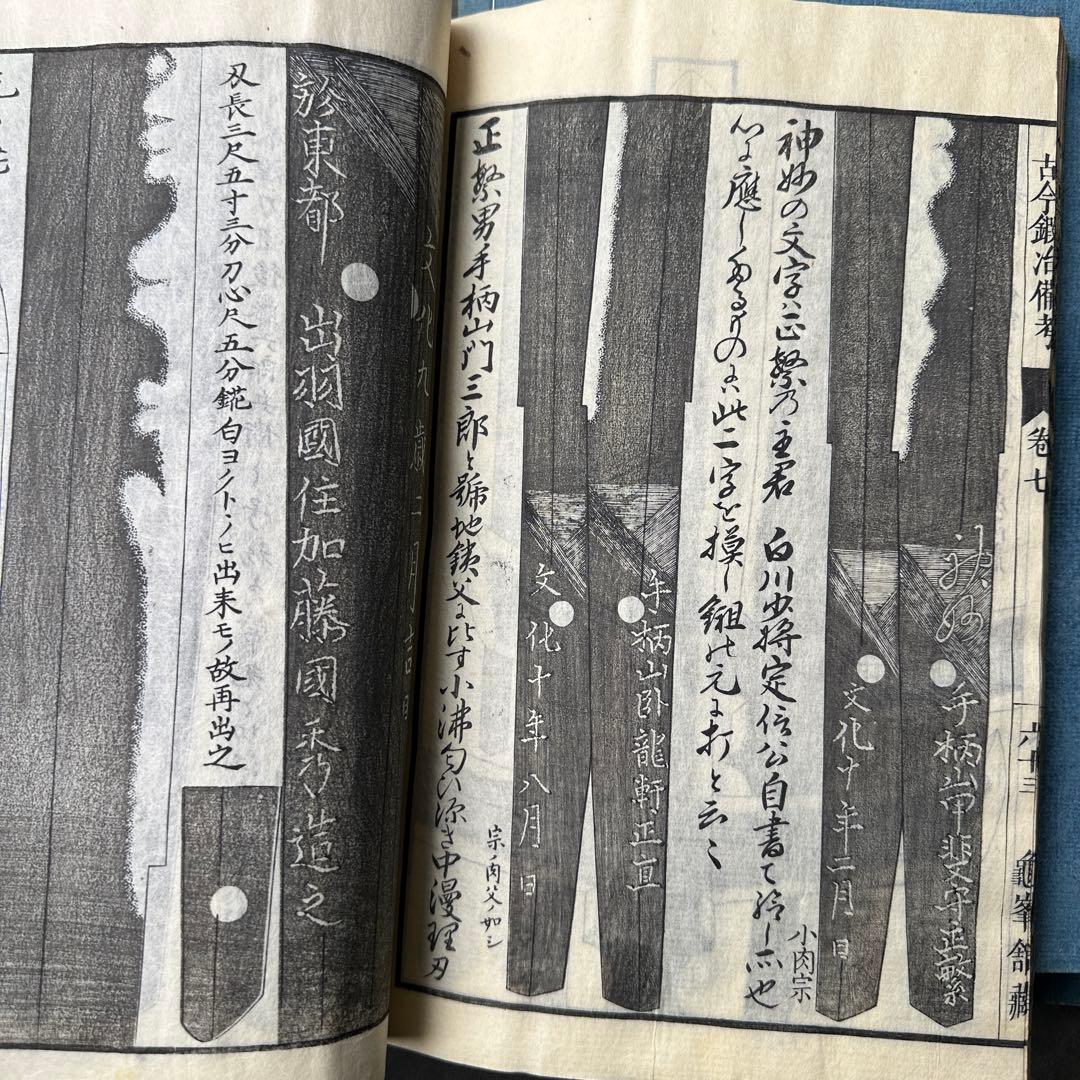 古今鍛冶備考
卷七
六十三
龜峯舘藏
神妙
手柄山甲斐守正繁
文化十年二月 日
神妙の文字ハ正繁乃主君 白川少将定信公自書て
此二字を摸し
元に打と云々
小肉宗
手柄山卧龍軒正直
文化十年八月 日
正繁男手柄山門三郎と號地鉄父に比す小沸匂ひ深き中漫理刃
宗ノ肉父ノ如シ
文化九歳二月吉日
於東都 出羽國住加藤國秀造之
刃長三尺五寸三分刀心尺五分鋩白ヨノトノヒ出来モノ故再出之